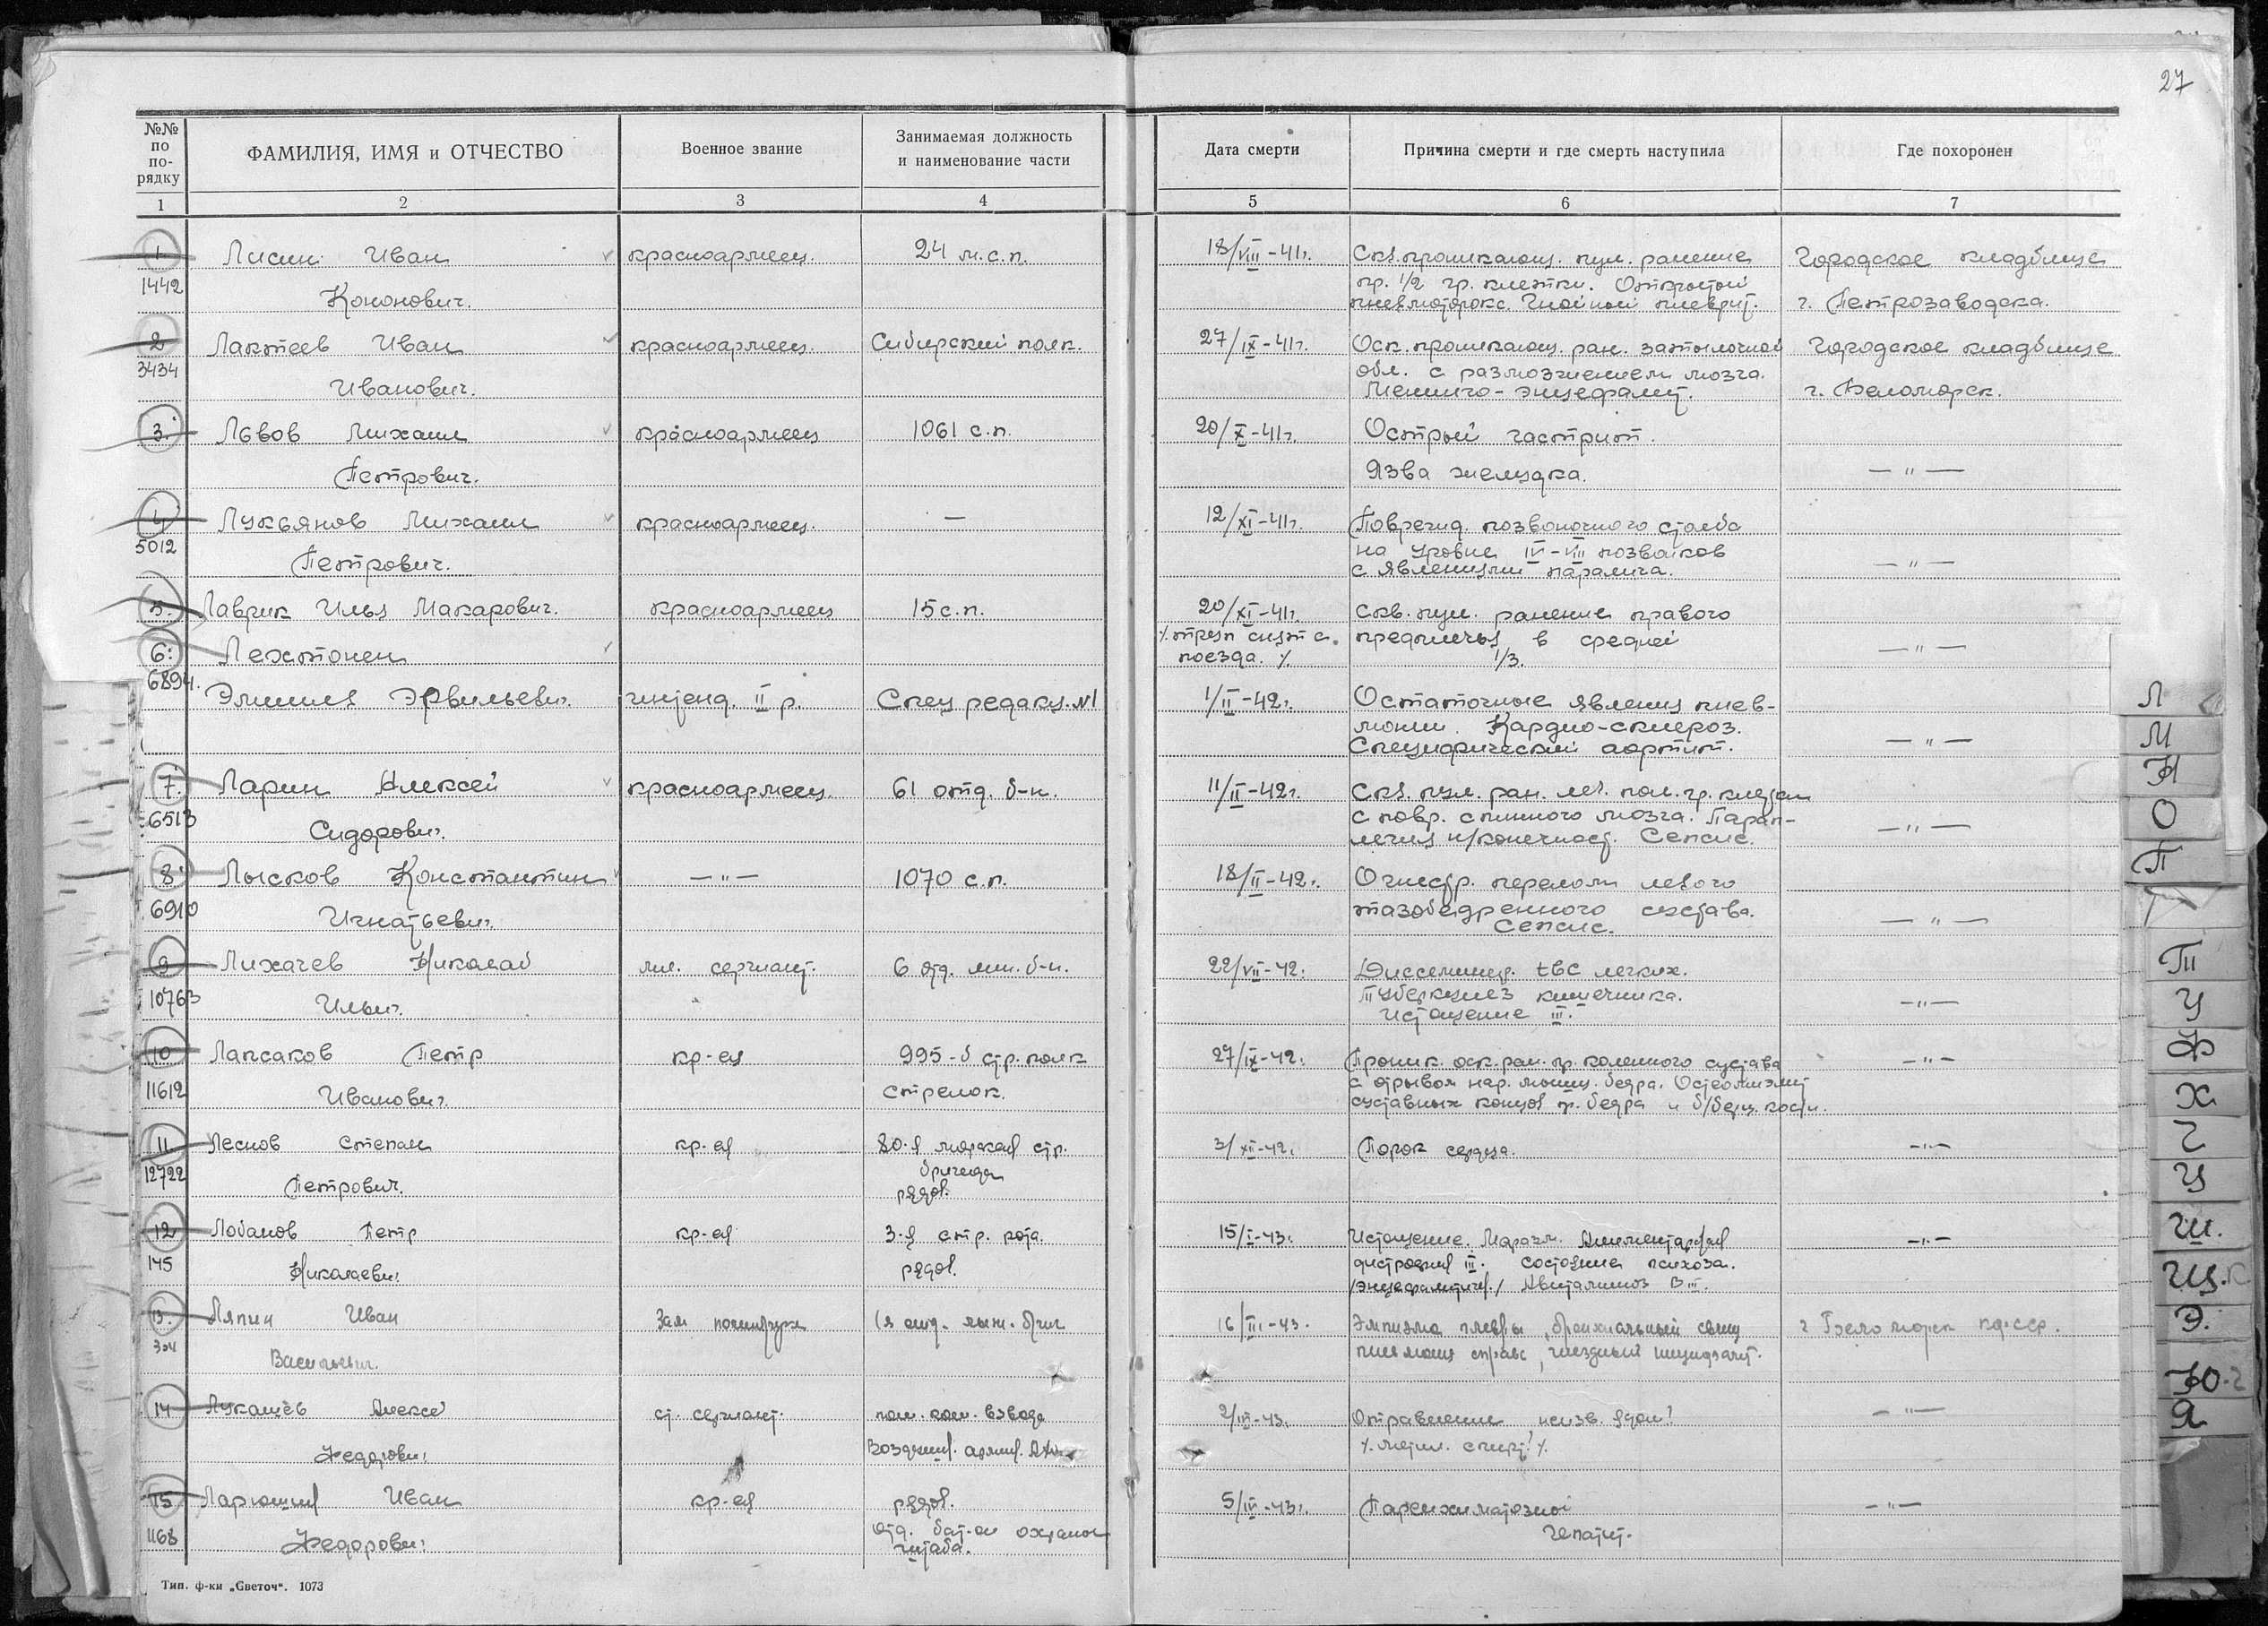 27
№№ по по-рядку
ФАМИЛИЯ, ИМЯ и ОТЧЕСТВО
Военное звание
Занимаемая должность и наименование части
Дата смерти
Причина смерти и где смерть наступила
Где похоронен
1 2 3 4 5 6 7
1. Лисин Иван красноармеец. 24 м.с.п. 18/VIII-41г. Скв. проникающ. пул. ранение Городское кладбище
1442 Кононович. пр. 1/2 гр. клетки. Открытый
пневмоторокс. Гнойный плеврит. г. Петрозаводска.
2 Лактеев Иван красноармеец. Сибирский полк. 27/IX-41г. Оск. проникающ. ран. затылочной Городское кладбище
3434 обл. с размозжением мозга.
Иванович. Менинго-энцефалит. г. Беломорск.
3. Львов Михаил красноармеец 1061 с.п. 20/X-41г. Острый гастрит.
Петрович. Язва желудка. — " —
4 Лукьянов Михаил красноармеец. — 12/XI-41г. Поврежд. позвоночного столба
5012 на уровне IV-VII позвонков
Петрович. с явлениями паралича. — " —
5. Лаврик Илья Макарович. красноармеец 15 с.п. 20/XI-41г. Скв. пул. ранение правого
/. труп снят с предплечья в средней
6. Лехтонен поезда. /. 1/3. — " —
6894. Эмилия Эрвильевич. интенд. II р. Спец редакц. №1 1/II-42г. Остаточные явления пнев-
монии. Кардио-склероз.
Специфический аортит. — " —
7. Ларин Алексей красноармеец. 61 отд. б-н. 11/II-42г. Скв. пул. ран. лев. пол. гр. клетки
6513 с повр. спинного мозга. Парап-
Сидорович. легия н/конечност. Сепсис. — " —
8. Лысков Константин — " — 1070 с.п. 18/II-42г. Огнестр. перелом левого
6910 тазобедренного сустава.
Игнатьевич. Сепсис. — " —
9 Лихачев Николай мл. сержант. 6 отд. лыж. б-н. 22/VII-42г. Диссеминир. tbc легких.
10763 Ильич. Туберкулез кишечника.
Истощение III. — " —
10 Лапсаков Петр кр-ец 995-й стр. полк 27/IX-42г. Проник. оск. ран. пр. коленного сустава — " —
11612 Иванович. стрелок. с отрывом нар. мыщ. бедра. Остеомиэлит
суставных концов пр. бедра и б/берц. кости.
11 Леснов Степан кр-ец 80-я морская стр. 3/XII-42г. Порок сердца. — " —
12722 Петрович. бригада
рядов.
12 Лобанов Петр кр-ец 3-я стр. рота. 15/I-43г. Истощение. Маразм. Алиментарная — " —
145 Николаевич. рядов. дистрофия III. Состояние психоза.
/энцефалитич./ Авитаминоз B III.
13. Ляпин Иван Зам политрука 16/III-43. Эмпиэма плевры, бронхиальный свищ г Беломорск КФССР.
Васильевич. пневмония справа,
14 Лукашёв Алексей ст. сержант. пом. ком. взвода 2/III-43г. Отравление неизв. ядом? — " —
Федорович /. метил. спирт? /.
15 Ларюшин Иван кр-ец рядов. 5/IV-43г. Паренхиматозной — " —
1168 Федорович отд. бат-он охраны гепатит.
штаба.
Тип. ф-ки „Светоч“. 1073
Л
М
Н
О
П
Т
У
Ф
Х
Ч
Ц
Ш.
Щ.
Э.
Ю.
Я